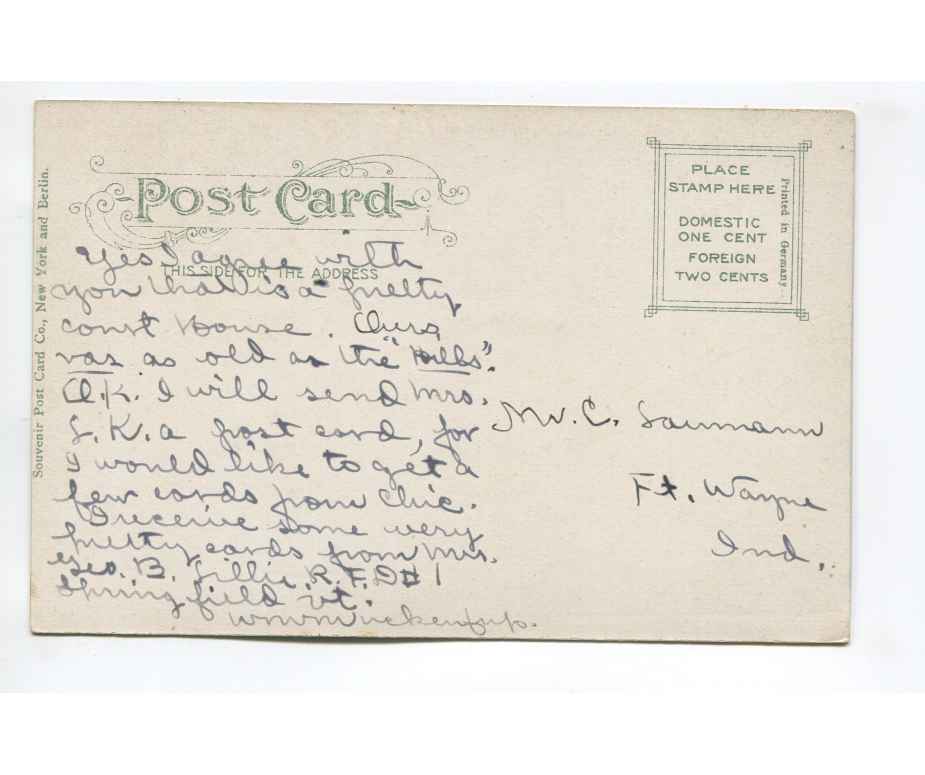 Post Card
THIS SIDE FOR THE ADDRESS
PLACE
STAMP HERE
DOMESTIC
ONE CENT
FOREIGN
TWO CENTS
Printed in Germany
Souvenir Post Card Co., New York and Berlin.
Yes I agree with
you that is a pretty
court House. Ours
was as old as the "Hills".
O.K. I will send Mrs.
S.K. a post card, for
I would like to get a
few cards from Chic.
I receive some very
pretty cards from Mrs.
Geo. B. Lillie, R.F.D #1
Springfield Vt.
C. Saumann
Ft. Wayne
Ind.